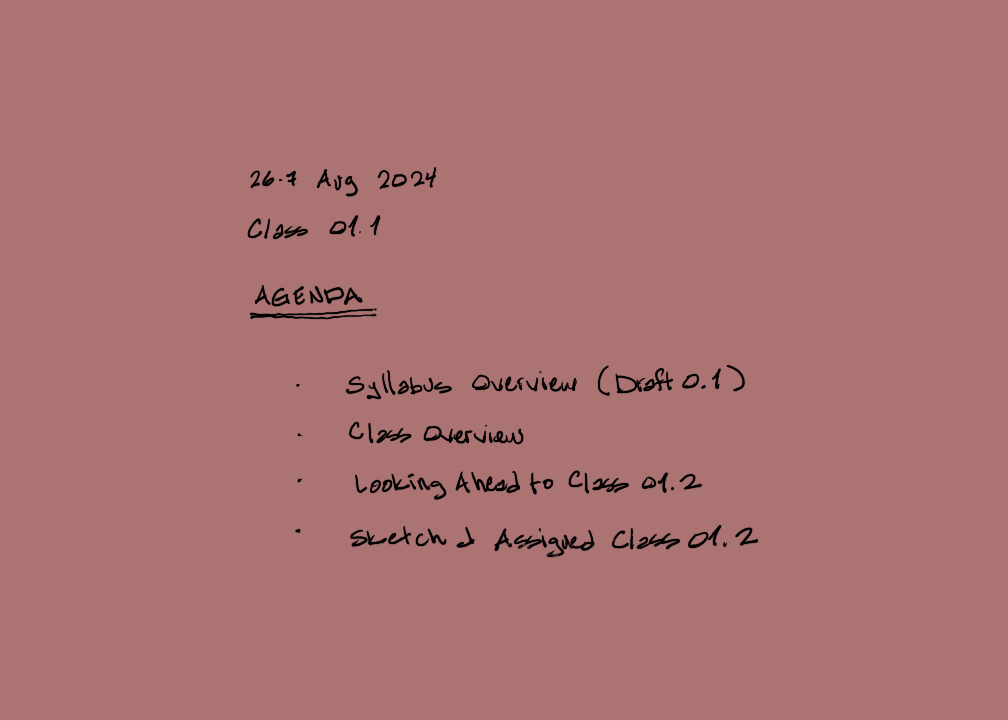 26-7 Aug 2024
Class 01.1
AGENDA
· Syllabus Overview (Draft 0.1)
· Class Overview
· Looking Ahead to Class 01.2
· Sketch Assigned Class 01.2